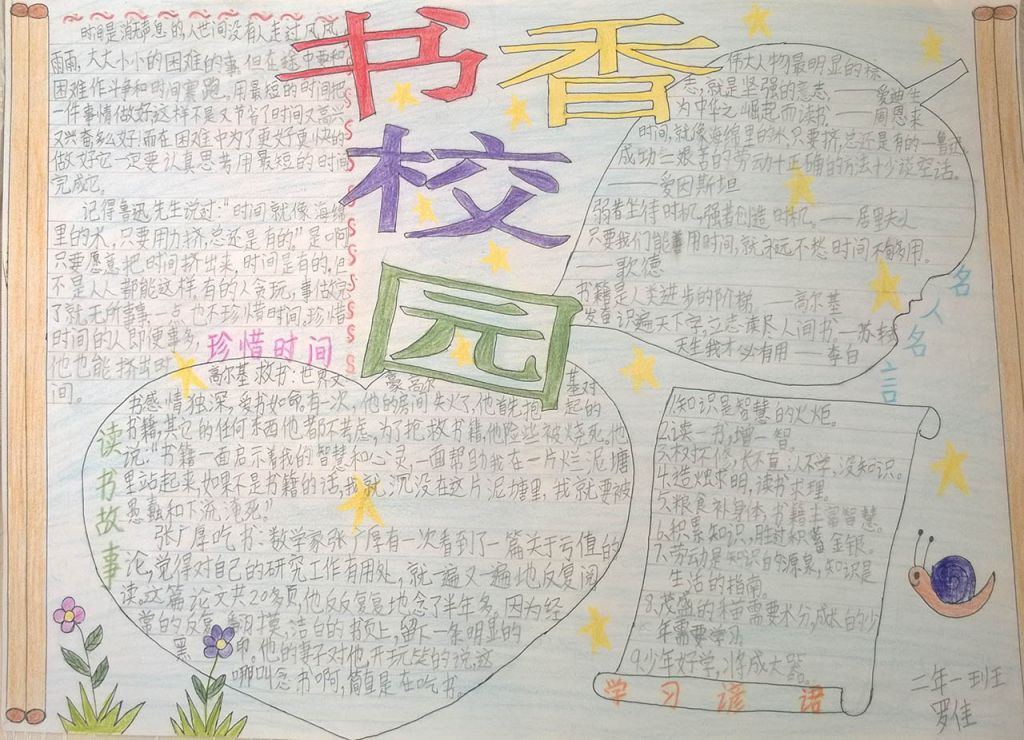 书香校园
时间是消无声息的,人世间没有人走过风风
雨雨,大大小小的困难的事,但在途中要和
困难作斗争和时间赛跑,用最短的时间把
一件事情做好这样不是又节省了时间又意义
又兴奋么好,而在困难中为了更好更快的
做好它一定要认真思考用最短的时间
完成它。
记得鲁迅先生说过:“时间就像海绵
里的水,只要用力挤,总还是有的。”是啊
只要愿意把时间挤出来,时间是有的,但
不是人人都能这样,有的人贪玩,事做完
了就无所事事,一点也不珍惜时间。珍惜
时间的人即便事多,
他也能挤出时
间。
珍惜时间
伟大人物最明显的标
志,就是坚强的意志。——爱迪生
为中华之崛起而读书。——周恩来
时间,就像海绵里的水,只要挤,总还是有的——鲁迅
成功=艰苦的劳动+正确的方法+少谈空话。
——爱因斯坦
弱者坐待时机,强者创造时机。——居里夫人
只要我们能善用时间,就永远不愁时间不够用。
——歌德
书籍是人类进步的阶梯。——高尔基
发奋识遍天下字,立志读尽人间书。——苏轼
天生我才必有用——李白
名人名言
读书故事
高尔基救书:世界文豪高尔基对
书感情独深,爱书如命,有一次,他的房间失火了,他首先抱起的
书籍,其它的任何东西他都不考虑,为了抢救书籍,他险些被烧死。他
说:“书籍一面启示着我的智慧和心灵,一面帮助我在一片烂泥塘
里站起来,如果不是书籍的话,我就沉没在这片泥塘里,我就要被
愚蠢和下流淹死。”
张广厚吃书:数学家张广厚有一次看到了一篇关于亏值的
论,觉得对自己的研究工作有用处,就一遍又一遍地反复阅
读,这篇论文共20多页,他反反复复地念了半年多。因为经
常的反复翻摸,洁白的书页上,留下一条明显的
黑印。他的妻子对他,开玩笑的说,这
哪叫念书啊,简直是在吃书。
1.知识是智慧的火炬。
2.读一书,增一智。
3.不吃不侈,长不直,人不学,没知识。
4.造烛求明,读书求理。
5.粮食补身体,书籍丰富智慧。
6.积累知识,胜过积蓄金银。
7.劳动是知识的源泉,知识是
生活的指南。
8.茂盛的禾苗需要水分,成长的少
年需要学习。
9.少年好学,将成大器。
学习谚语
二年一班
罗佳